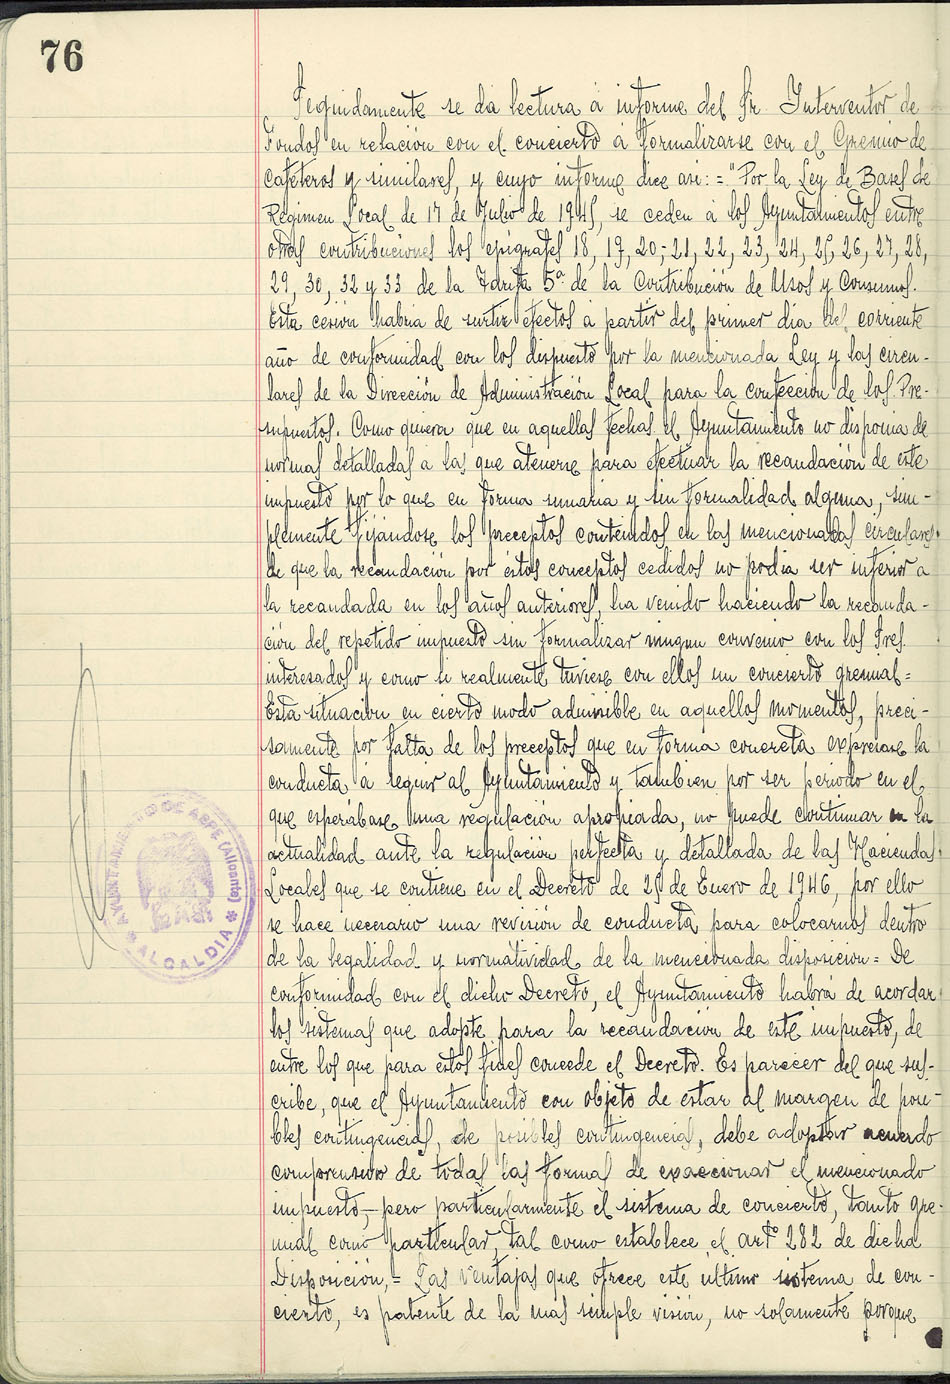 76
Seguidamente se da lectura a informe del Sr. Interventor de
Fondos en relación con el concierto a formalizarse con el Gremio de
cafeteros y similares, y cuyo informe dice asi: = "Por la Ley de Bases de
Régimen Local de 17 de Julio de 1945, se ceden a los Ayuntamientos entre
otras contribuciones los epígrafes 18, 19, 20,- 21, 22, 23, 24, 25, 26, 27, 28,
29, 30, 32 y 33 de la Tarifa 5ª de la Contribución de Usos y Consumos.
Esta cesión habria de surtir efectos a partir del primer dia del corriente
año de conformidad con los dispuesto por la mencionada Ley y las circu-
lares de la Dirección de Administración Local para la confección de los Pre-
supuestos. Como quiera que en aquellas fechas el Ayuntamiento no disponia de
normas detalladas a las que atenerse para efectuar la recaudación de este
impuesto por lo que en forma sumaria y sin formalidad alguna, sim-
plemente fijándose los preceptos contenidos en las mencionadas circulares
de que la recaudación por éstos conceptos cedidos no podia ser inferior a
la recaudada en los años anteriores, ha venido haciendo la recauda-
ción del repetido impuesto sin formalizar ningun convenio con los Sres.
interesados y como si realmente tuviese con ellos un concierto gremial =
Esta situacion en cierto modo admisible en aquellos momentos, preci-
samente por falta de los preceptos que en forma concreta expresase la
conducta a seguir al Ayuntamiento y tambien por ser periodo en el
que esperábase una regulación apropiada, no puede continuar en la
actualidad ante la regulación perfecta y detallada de las Haciendas
Locales que se contiene en el Decreto de 25 de Enero de 1946, por ello
se hace necesario una revisión de conducta para colocarnos dentro
de la legalidad y normatividad de la mencionada disposicion = De
conformidad con el dicho Decreto, el Ayuntamiento habrá de acordar
los sistemas que adopte para la recaudación de este impuesto, de
entre los que para estos fines concede el Decreto. Es parecer del que sus-
cribe, que el Ayuntamiento con objeto de estar al margen de posi-
bles contingencias, de posibles contingencias, debe adoptar acuerdo
comprensivo de todas las formas de exaccionar el mencionado
impuesto,- pero particularmente el sistema de concierto, tanto gre-
mial como particular, tal como establece el artº 282 de dicha
Disposición,= Las ventajas que ofrece este ultimo sistema de con-
cierto, es patente de la mas simple visión, no solamente porque
AYUNTAMIENTO DE ASPE (Alicante)
* ALCALDIA *